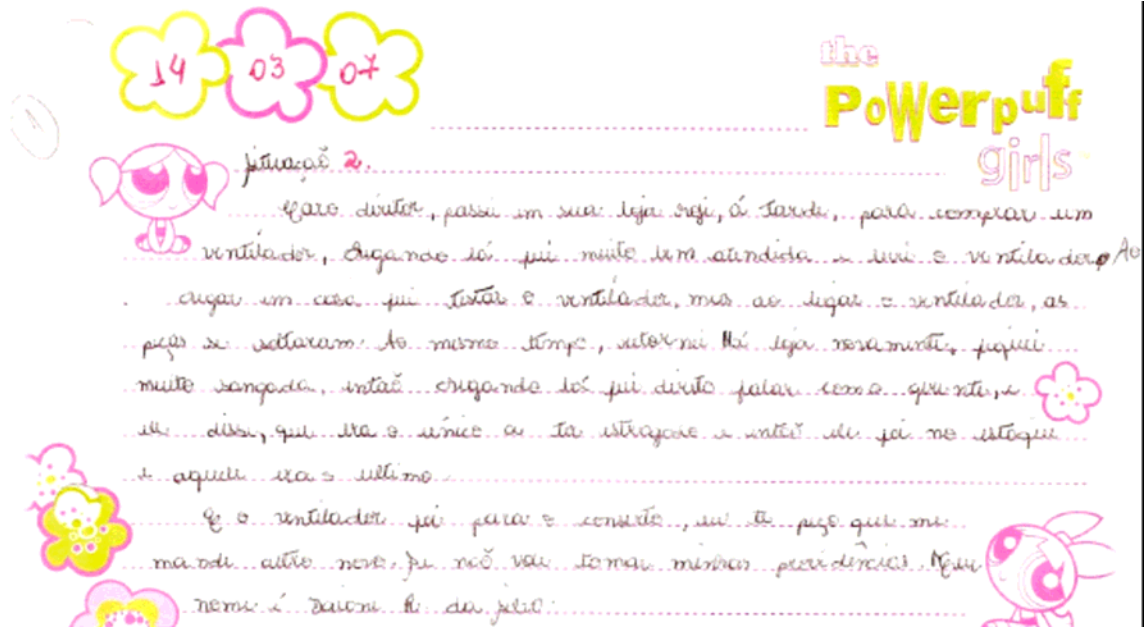 14 03 07
the
Powerpuff
girls
situação 2.
Caro diretor, passei em sua loja hoji, á tarde, para comprar um
ventilador, chegando lá fui muito bem atendida e levei o ventilador Ao
chegar em casa fui testar o ventilador, mas ao ligar o ventilador, as
peças se soltaram. Ao mesmo tempo, retornei loja novamente, fiquei
muito zangada, intaõ chegando lá fui direto falar com o gerente, e
ele disse, que era o único a ta estragado e ele foi no estoque
e aquele era o ultimo.
E o ventilador foi para o conserto, eu te peço que me
mande outro novo. Se naõ vou tomar minhas providências. Meu
nome é da